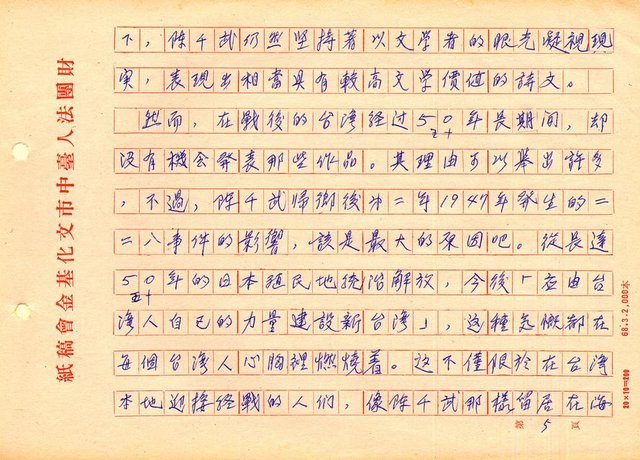 下，陳千武仍然坚持著以文学者的眼光凝視現
実，表現出相當具有較高文学價值的詩文。
然而，在戰後的台湾経过50年長期间，却
五十
没有機会発表那些作品。其理由可以舉出許多
，不過，陳千武帰鄉後第二年1947年発生的二
二八事件的影響，該是最大的原因吧。從長達
50年的日本殖民地統治解放，今後「应由台
五十
湾人自己的力量建設新台湾」，这種感慨都在
每個台湾人心胸裡燃燒着。这不僅限於在台湾
本地迎接終戰的人们，像陳千武那樣留居在海
第5頁
財團法人臺中市文化基金會稿紙
68.3.2,000本
20×10=200